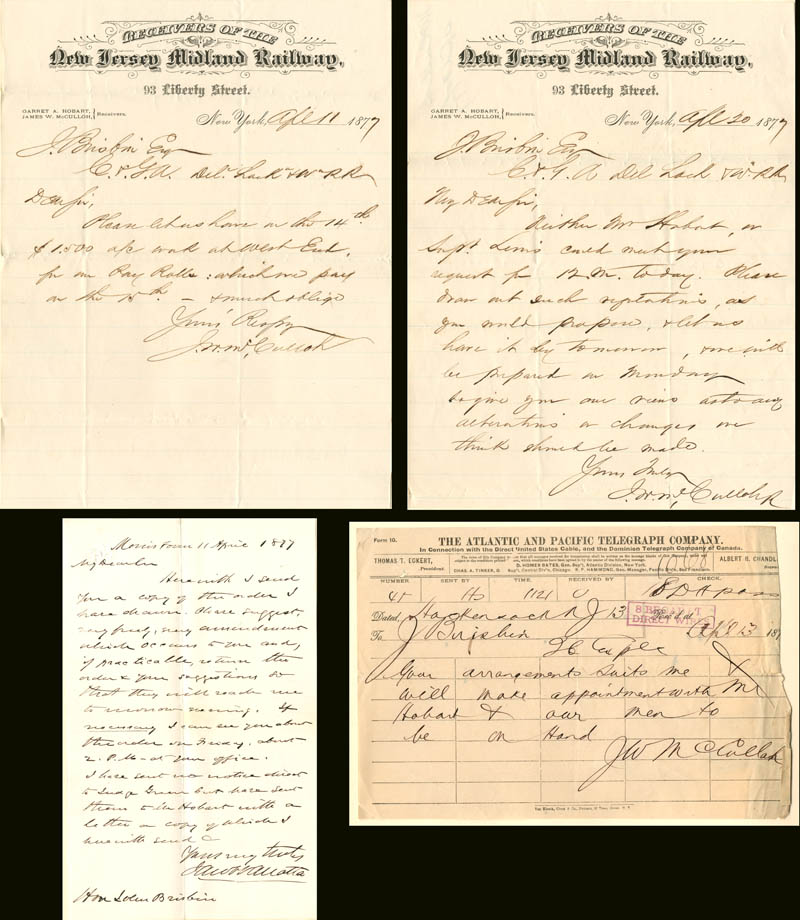 RECEIVERS OF THE
New Jersey Midland Railway,
93 Liberty Street.
GARRET A. HOBART,
JAMES W. McCULLOH,
Receivers.
New York, Apl 11 1877
J. Brisbin Esq
C. & G. A. Del. Lack & Wn R R
Dear Sir,
Please let us have on the 14th
$1.500 a/c work at West End,
for our Pay Rolls: which we pay
on the 15th — & much oblige
Yours Respy
J. W. McCulloh
RECEIVERS OF THE
New Jersey Midland Railway,
93 Liberty Street.
GARRET A. HOBART,
JAMES W. McCULLOH,
Receivers.
New York, Apl 20 1877
J. Brisbin Esq
C. & G. A Del Lack & Wn R R
My Dear Sir,
Neither Mr Hobart, or
Supt. Lewis could meet your
request for 12 M. today. Please
draw out such as
you would propose, & let us
have it by tomorrow, & we will
be prepared on Monday
to give you our views as to any
alterations or changes we
think should be made.
Yours Truly
J. W. McCulloh R
11 April 1877
My dear Sir
Herewith I send
you a copy of the order I
have drawn. Please suggest,
very freely, any amendment
which occurs to you and,
if practicable, return the
order & your suggestions so
that they will reach me
tomorrow evening. If
necessary I can see you about
the order on Friday, about
2. P.M. at your office.
I have sent no notice direct
to Judge Green but have sent
them to Mr Hobart with a
letter a copy of which I
herewith send
Yours very truly
Jacob Vanatta
Hon John Brisbin
Form 10.
THE ATLANTIC AND PACIFIC TELEGRAPH COMPANY.
In Connection with the Direct United States Cable, and the Dominion Telegraph Company of Canada.
THOMAS T. ECKERT,
President.
D. HOMER BATES, Gen. Sup't, Atlantic Division, New York.
CHAS. A. TINKER,
R. P. HAMMOND, Gen. Manager, Pacific Div., San Francisco.
ALBERT B. CHANDL
NUMBER. SENT BY TIME. CHECK.
Dated, Hackensack N J 13
Rec'd, at
8 BROAD ST
DIRECT WIRES
To J Brisbin Apl 13 187
Your arrangements suits me &
will make appointment with Mr
Hobart & our men to
be on Hand
J W McCulloh